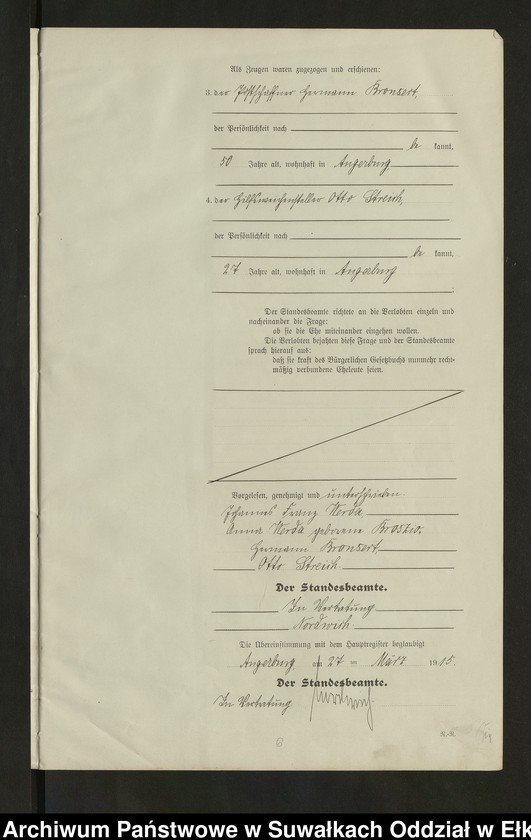 Als Zeugen waren zugezogen und erschienen:
3. der Postschaffner Hermann Kronsert,
der Persönlichkeit nach
be kannt,
50 Jahre alt, wohnhaft in Angerburg
4. der Hilfsweichensteller Otto Streich,
der Persönlichkeit nach
be kannt,
27 Jahre alt, wohnhaft in Angerburg
Der Standesbeamte richtete an die Verlobten einzeln und
nacheinander die Frage:
ob sie die Ehe miteinander eingehen wollen.
Die Verlobten bejahten diese Frage und der Standesbeamte
sprach hierauf aus:
daß sie kraft des Bürgerlichen Gesetzbuchs nunmehr recht-
mäßig verbundene Eheleute seien.
Vorgelesen, genehmigt und unterschrieben.
Johannes Franz Werda
Anna Werda geborene Kroszio.
Hermann Kronsert
Otto Streich
Der Standesbeamte.
In Vertretung
Nordwich
Die Übereinstimmung mit dem Hauptregister beglaubigt
Angerburg am 27 ten März 1915.
Der Standesbeamte.
In Vertretung
6
Archiwum Państwowe w Suwałkach Oddział w Ełk